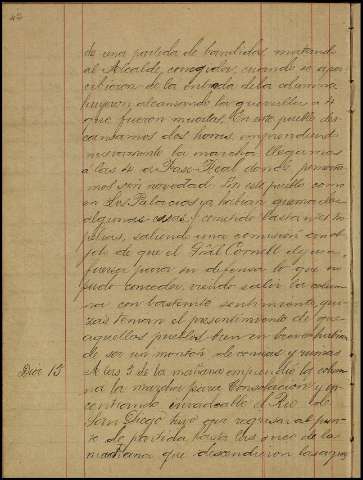 de una partida de bandidos matando
al Alcalde, cuando se aper-
cibieron de la entrada de la columna
huyeron alcanzando la guerrilla a 4
que fueron muertos. En este pueblo des-
cansamos dos horas, emprendiendo
nuevamente la marcha llegamos
a las 4 a Paso Real donde pernocta-
mos sin novedad. En este pueblo como
en Los Palacios ya habian quemado
algunas casas y cometido bastantes
saliendo una comision con ob-
jeto de que el Gral Cornell dejara
fuerza para su defensa lo que no
pudo conceder, viendo salir la colum-
na con bastante sentimiento, qui-
zas tenian el presentimiento de que
aquellos pueblos bien en breve habian
de ser un monton de cenizas y ruinas
Dia 13 A las 5 de la mañana emprendio la colum-
na la marcha para Consolacion y en-
contrando invadeable el Rio de
San Diego tuvo que regresar al pun-
to de partida hasta las once de la
mañana que descendieron las aguas